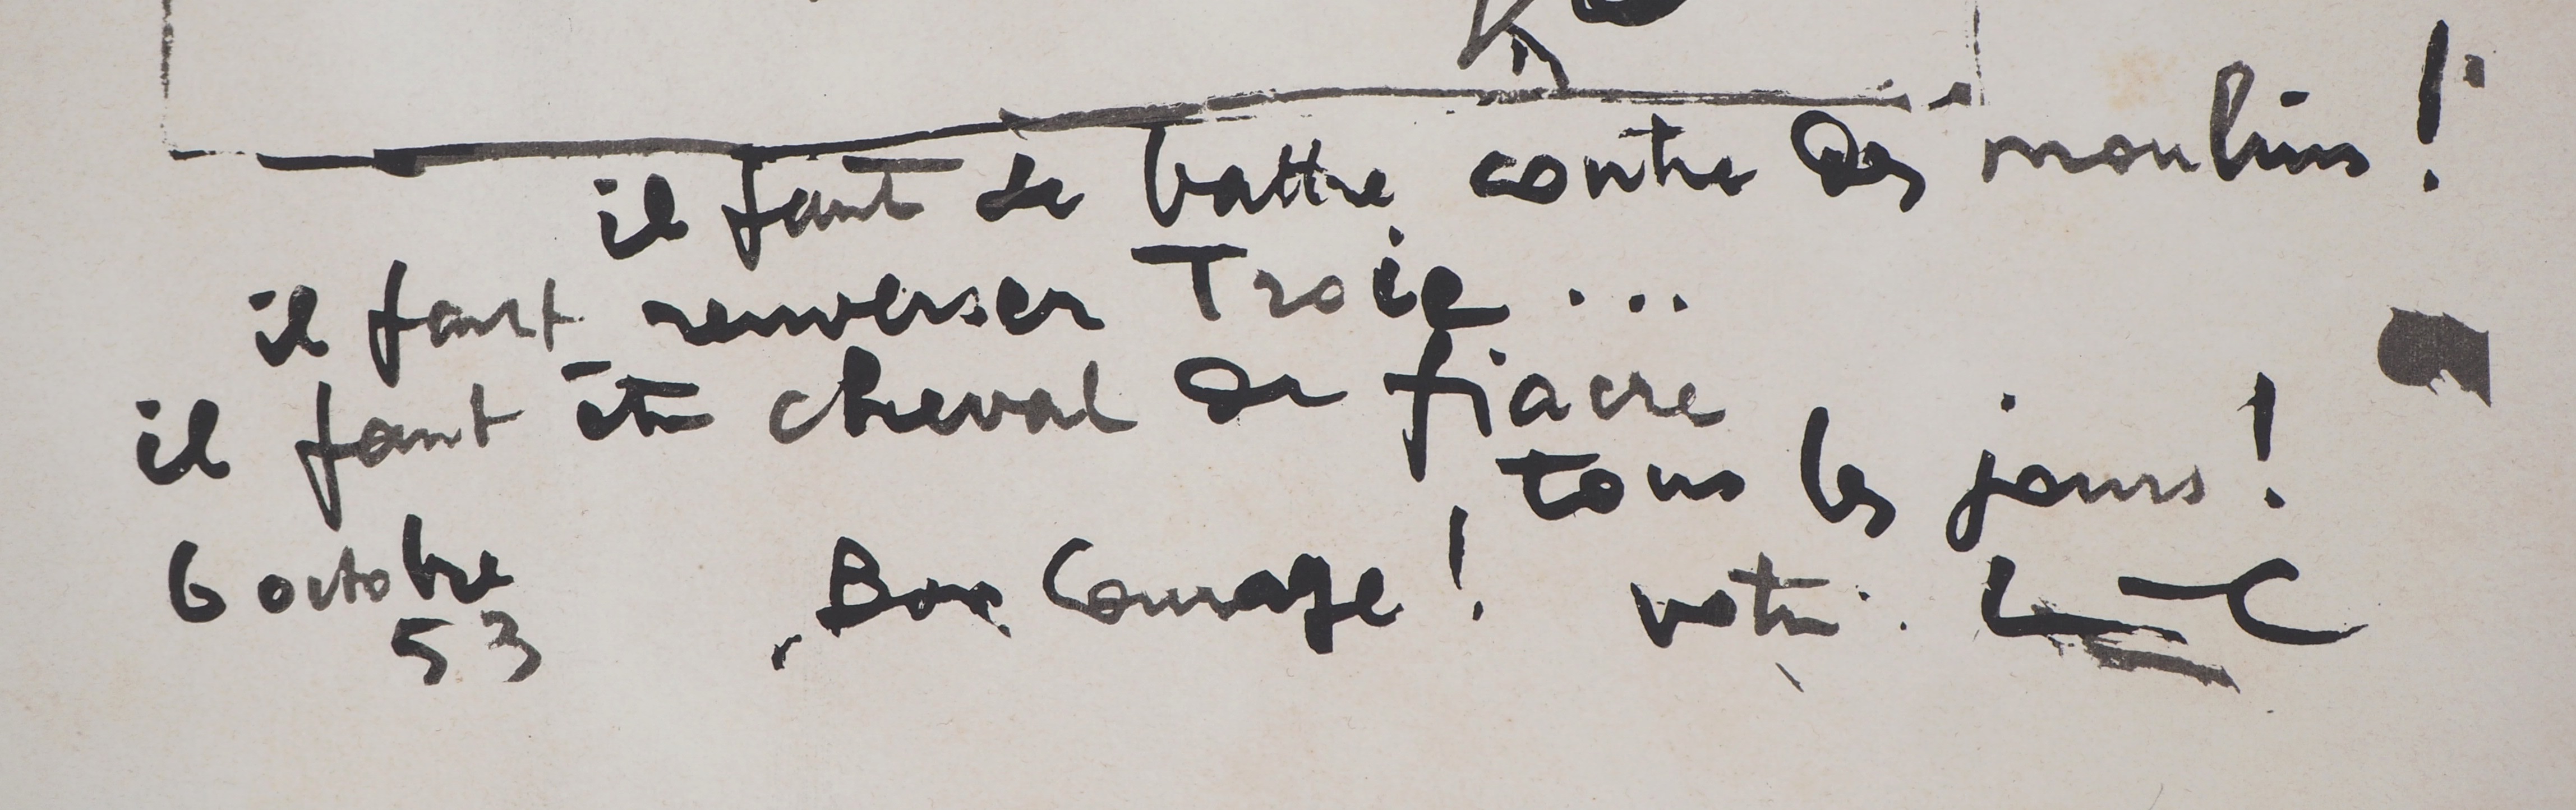 il faut se battre contre des moulins !
il faut renverser Troie ...
il faut être cheval de fiacre
tous les jours !
6 octobre
53
Bon Courage ! votre L–C